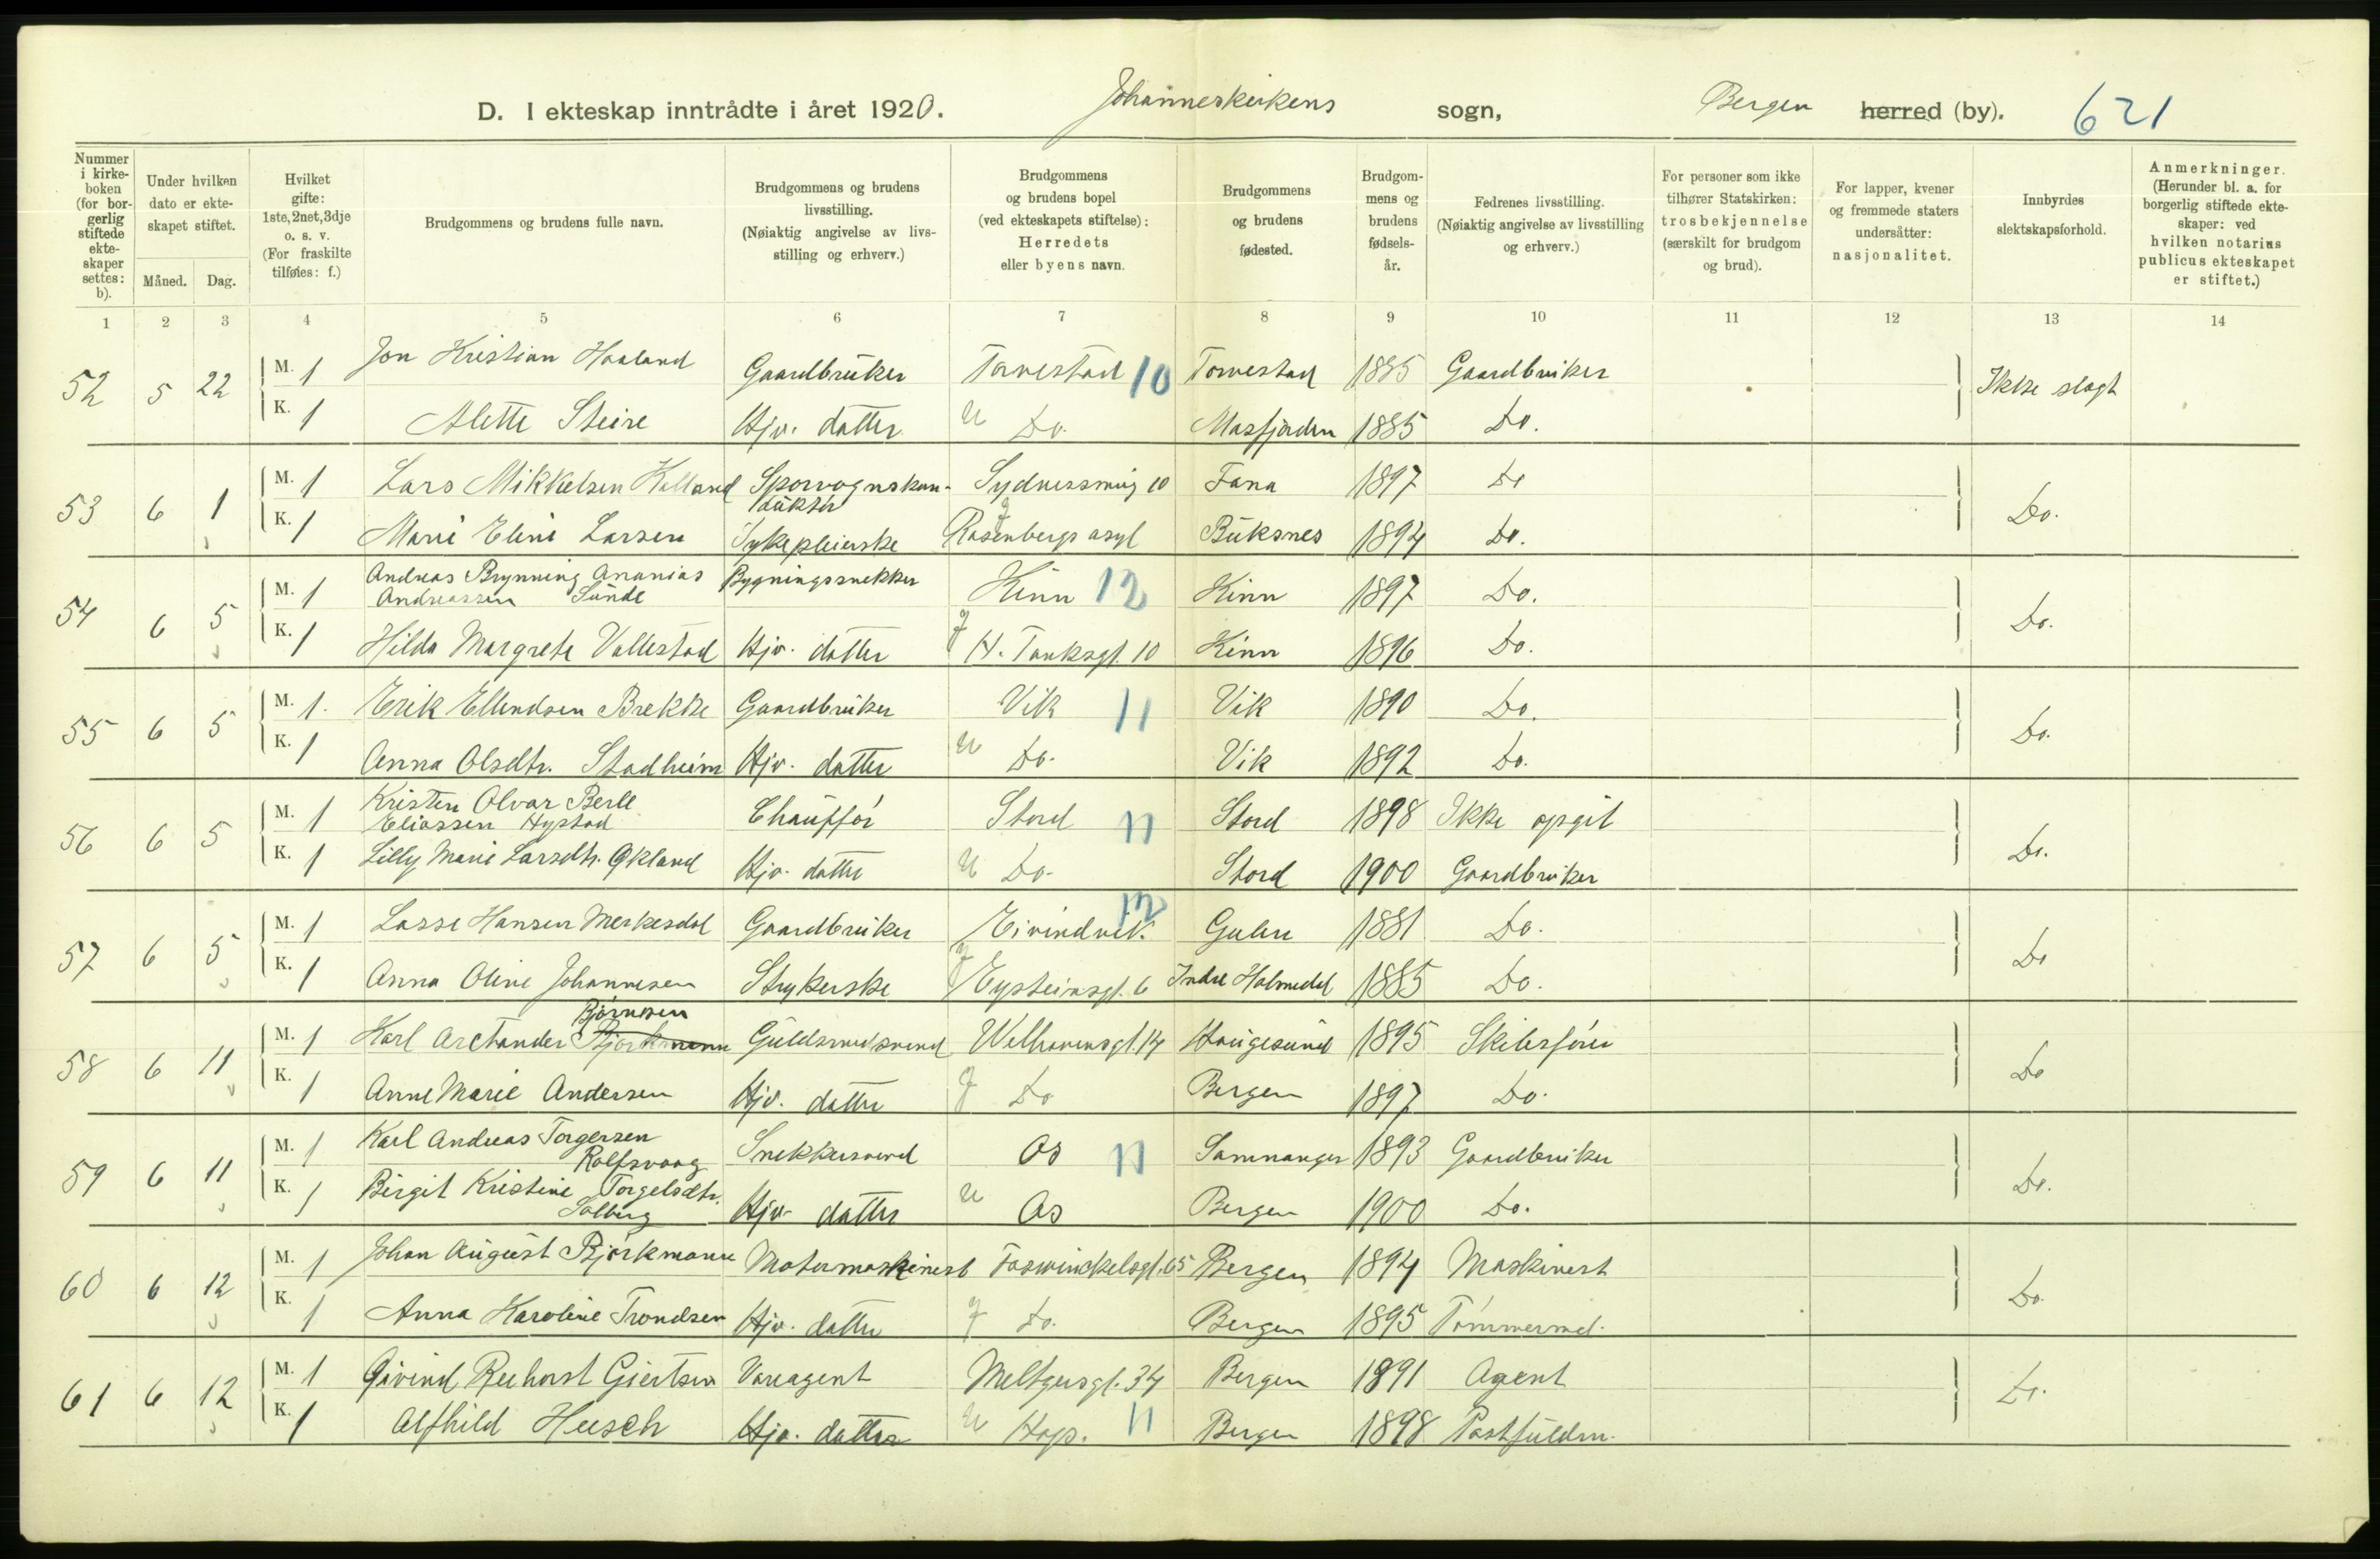 D. I ekteskap inntrådte i året 1920. Johanneskirkens sogn, Bergen herred (by). 621
Nummer i kirkeboken (for borgerlig stiftede ekteskaper settes: b).
Under hvilken dato er ekteskapet stiftet.
Måned. Dag.
Hvilket gifte: 1ste, 2net, 3dje o. s. v. (For fraskilte tilføies: f.)
Brudgommens og brudens fulle navn.
Brudgommens og brudens livsstilling. (Nøiaktig angivelse av livsstilling og erhverv.)
Brudgommens og brudens bopel (ved ekteskapets stiftelse): Herredets eller byens navn.
Brudgommens og brudens fødested.
Brudgommens og brudens fødselsår.
Fedrenes livsstilling. (Nøiaktig angivelse av livsstilling og erhverv.)
For personer som ikke tilhører Statskirken: trosbekjennelse (særskilt for brudgom og brud).
For lapper, kvener og fremmede staters undersåtter: nasjonalitet.
Innbyrdes slektskapsforhold.
Anmerkninger. (Herunder bl. a. for borgerlig stiftede ekteskaper: ved hvilken notarius publicus ekteskapet er stiftet.)
1 2 3 4 5 6 7 8 9 10 11 12 13 14
52 5 22 M. 1 Jon Kristian Haaland Gaardbruker Torvestad 10 Torvestad 1885 Gaardbruker Ikke slagt
K. 1 Alette Steire Hjv. datter u Do. Masfjorden 1885 Do.
53 6 1 M. 1 Lars Mikkelsen Halland Sporvognskonduktør Sydnessmug 10 Fana 1897 Do Do.
K. 1 Marie Eline Larsen Sykepleierske Rosenbergs asyl Buksnes 1894 Do.
54 6 5 M. 1 Andreas Brynning Ananias Andreassen Sunde Bygningssnekker Kinn 12 Kinn 1897 Do. Do.
K. 1 Hilda Margrete Vallestad Hjv. datter H. Tanksgt. 10 Kinn 1896 Do.
55 6 5 M. 1. Erik Ellendsen Brekke Gaardbruker Vik 11 Vik 1890 Do. Do.
K. 1 Anna Olsdtr. Stadheim Hjv. datter u Do. Vik 1892 Do.
56 6 5 M. 1 Kristen Olvar Berle Eliassen Hystad Chauffør Stord 11 Stord 1898 Ikke opgit Do.
K. 1 Lilly Marie Larsdtr. Økland Hjv. datter u Do. Stord 1900 Gaardbruker
57 6 5 M. 1 Lasse Hansen Merkesdal Gaardbruker Eivindvik. 12 Gulen 1881 Do. Do
K. 1 Anna Oline Johannesen Strykerske Eysteinsgt. 6 Indre Holmedal 1885 Do.
58 6 11 M. 1 Karl Arctander Bjørnsen Guldsmedsvend Welhavensgt. 14 Haugesund 1895 Skibsfører Do
K. 1 Anne Marie Andersen Hjv. datter Do Bergen 1897 Do.
59 6 11 M. 1 Karl Andreas Torgersen Rolfsvaag Snekkersvend Os 11 Samnanger 1893 Gaardbruker Do.
K. 1 Birgit Kristine Torgelsdtr. Solberg Hjv. datter u Os Bergen 1900 Do.
60 6 12 M. 1 Johan August Bjørkmann Motormaskinist Foswinckelsgt. 65 Bergen 1894 Maskinist Do.
K. 1 Anna Karoline Trondsen Hjv. datter Do. Bergen 1895 Tømmermd.
61 6 12 M. 1 Øivind Reehorst Giertsen Vareagent Meltzersgt. 34 Bergen 1891 Agent Do.
K. 1 Alfhild Heesch Hjv. datter u Hop. 11 Bergen 1898 Postfuldm.